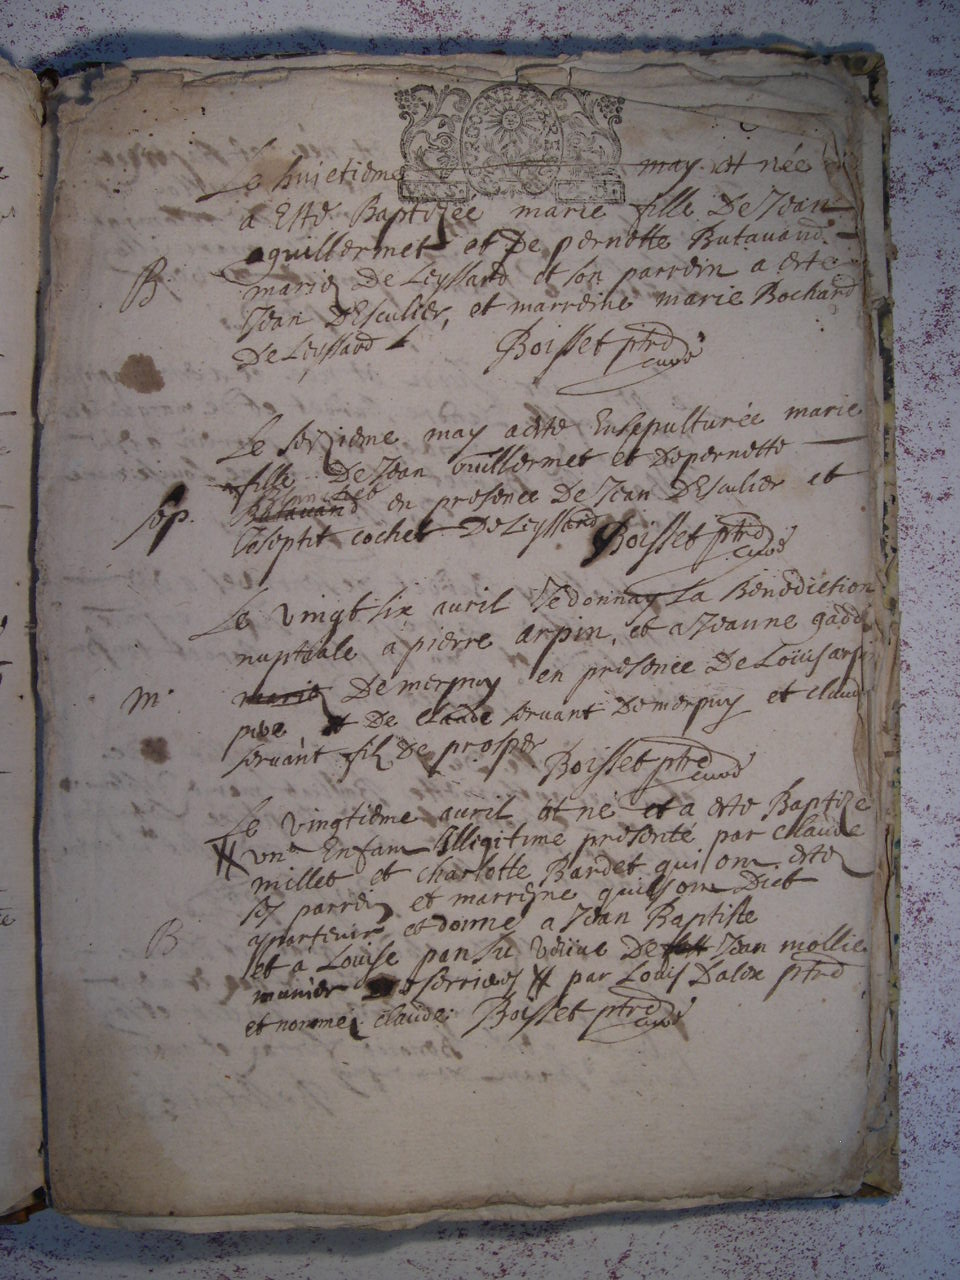 Le huietieme may et née
a esté Baptizée marie fille De Jean
guillermet et De pernette Butavand
mariez De Leyssard et son parrein a esté
B
Jean D'Esculier, et marreine marie Bochard
De Leyssard Boisset ptre curé
Le seizieme may a esté Ensepulturée marie
fille De Jean vuillermet et De pernette
Blanchet
Butavand en presence De Jean D'Esculier et
sep.
cochet De Leyssard Boisset ptre curé
Le vingt six auril Je donnay La Benediction
nuptialle a pierre arpin, et a Jeanne
mariez De merpuy en presence De Louis arpin
m.
pere et De claude servant De merpuy et claude
servant filz De prosper Boisset ptre curé
Le vingtieme auril et né et a esté Baptizé
vn Enfant Illegitime presenté par claude
millet et charlotte Bardet qui ont esté
ses parrein et marreine quils ont Dict
appartenir et donné a Jean Baptiste
B
et a Louise vefve De Jean mollie
munier par Louis Dalex ptre
et nommé claude Boisset ptre curé